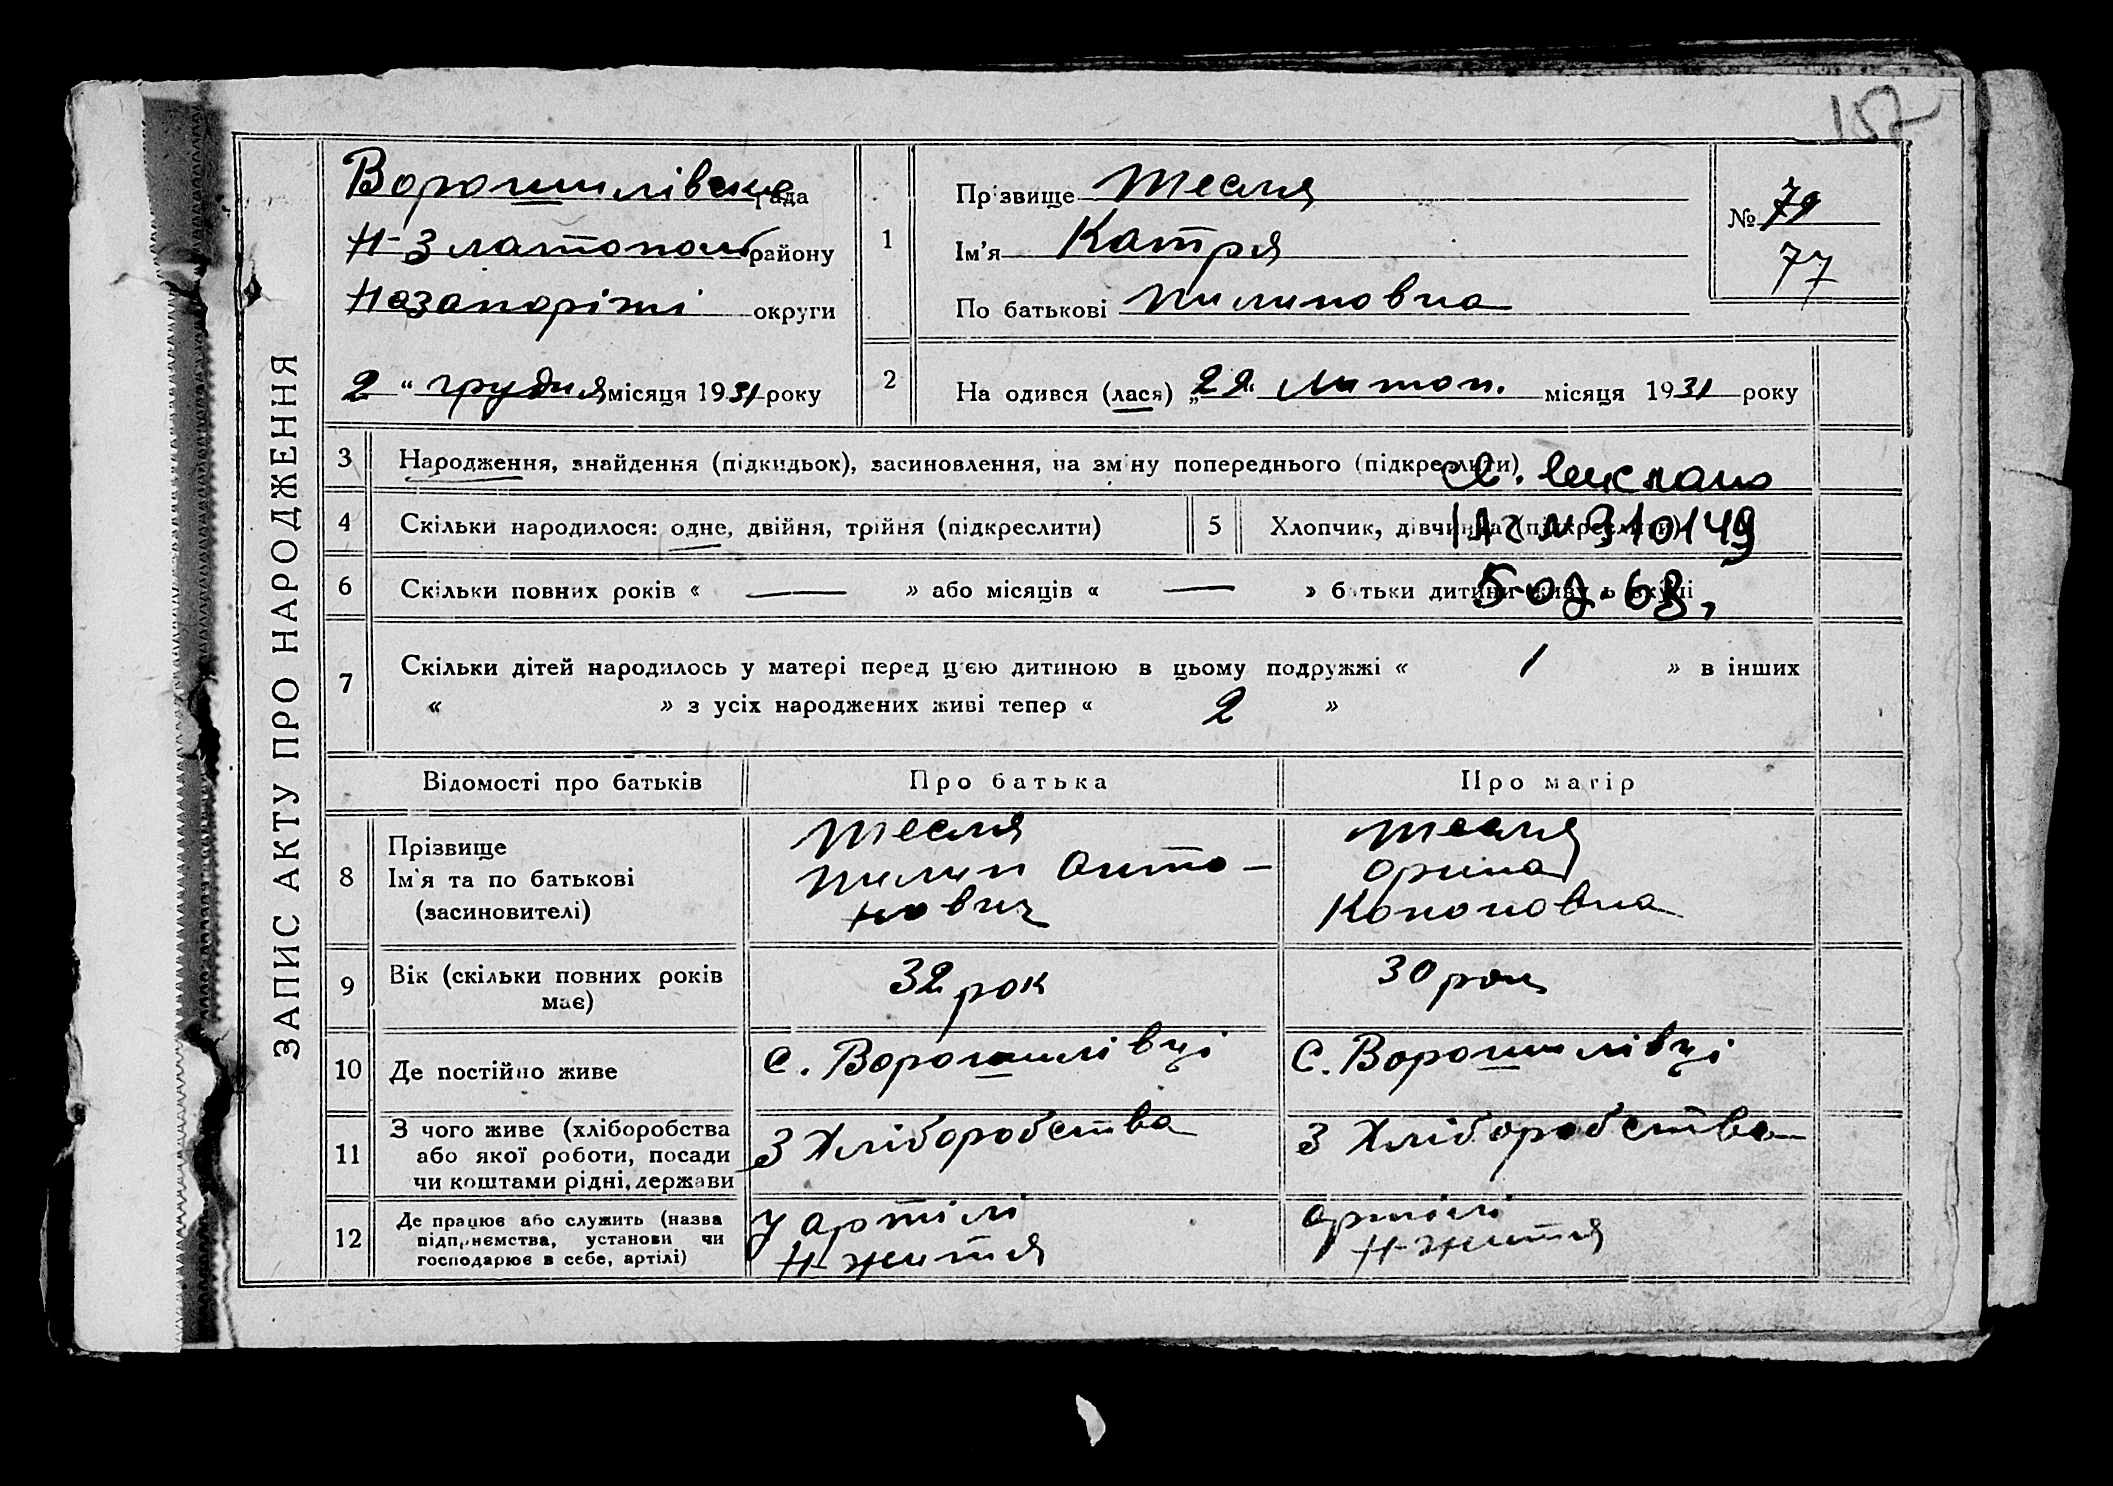 157
ЗАПИС АКТУ ПРО НАРОДЖЕННЯ
Ворошилівська рада
Н-Златополь району
Назапоріжі округи
2 “ грудня місяця 1931 року
1
Прізвище Тесля
Ім'я Катря
По батькові Пилиповна
№ 79
77
2
На одився (лася) „22“ Листоп. місяця 1931 року
3 Народження, знайдення (підкидьок), засиновлення, на зміну попереднього (підкреслити)
4 Скільки народилося: одне, двійня, трійня (підкреслити)
5 Хлопчик, дівчинка (підкреслити)
310149
6 Скільки повних років « — » або місяців « — » батьки дитини живуть вкупі
7 Скільки дітей народилось у матері перед цією дитиною в цьому подружжі « 1 » в інших
« » з усіх народжених живі тепер « 2 »
Відомості про батьків Про батька Про матір
8 Прізвище
Ім'я та по батькові
(засиновителі)
Тесля
Пилип Анто-
нович
Тесля
Орина
Кононовна
9 Вік (скільки повних років
має)
32 рок
30 рок
10 Де постійно живе
с. Ворошилівці
с. Ворошилівці
11 З чого живе (хліборобства
або якої роботи, посади
чи коштами рідні, держави
З Хліборобства
З Хліборобства
12 Де працює або служить (назва
підприємства, установи чи
господарює в себе, артілі)
у артілі
Н-життя
артілі
Н-життя